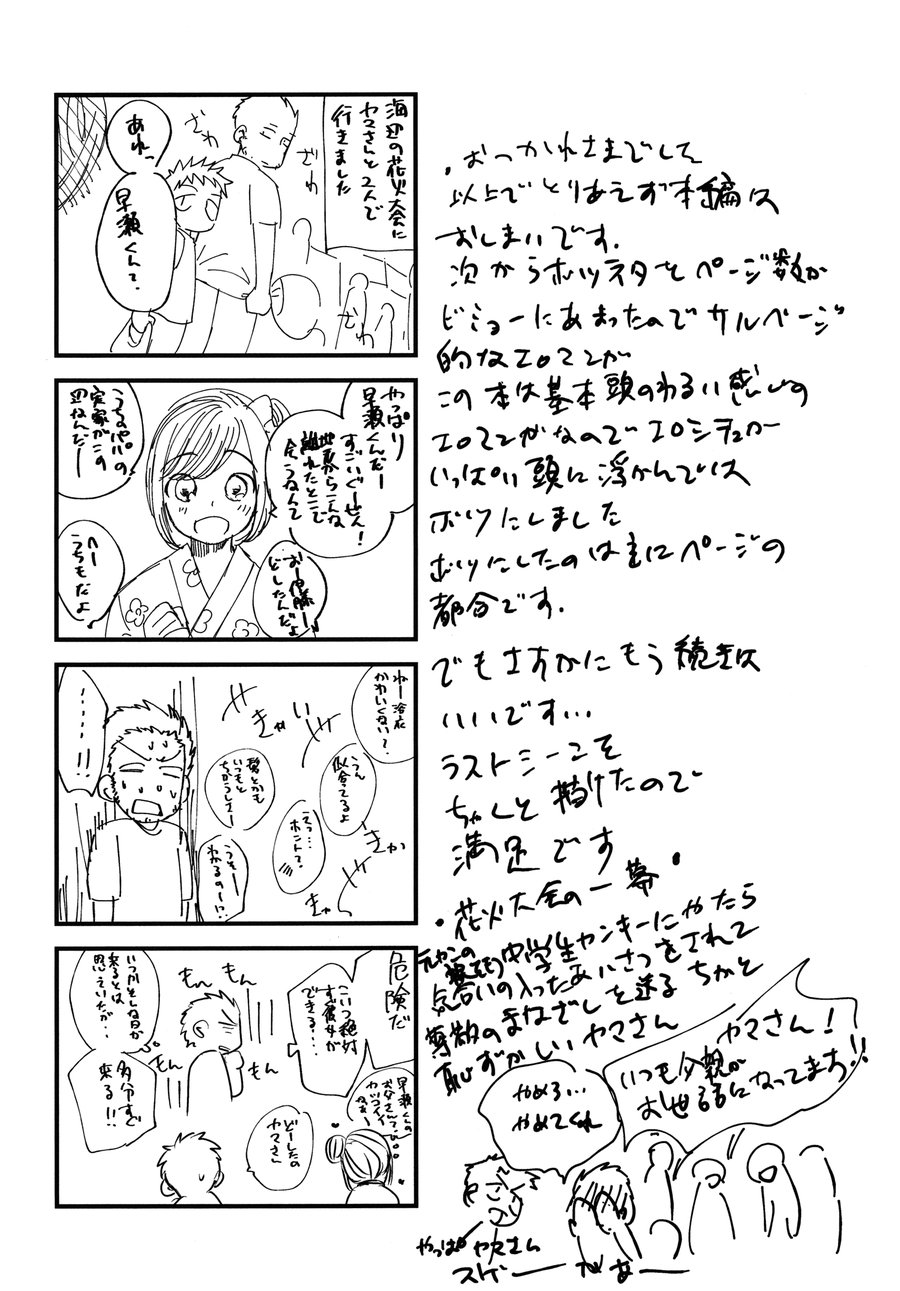 海辺の花火大会に
ヤマさんと2人で
行きました
ざわ
ざわ
ざわ
あれっ
早瀬くんて。
やっぱり
早瀬くんだー
すごいぐーぜん!
地元からこんな
離れたとこで
会うなんて
おー伊藤ー
どしたんだよ
うちのパパの
実家がこの
辺なんだー
へー
うちもだよ
ねー浴衣
かわいくない?
うん
似合ってるよ
えっ…
ホント?
髪とかも
いつもと
ちがうしさー
うそー
わかるのー!?
きゃい
きゃい
きゃ
……!!
危険だ
こいつ絶対
すぐ彼女が
できる…!
いつかそんな日が
来るとは
思えていたが…
多分すぐ
来る!!
もん
もん
もん
もん
早瀬くんの
お父さんて
カッコイイ
ねぇ…
どーしたの
ヤマさん
・おつかれさまでした
以上でとりあえず本編は
おしまいです.
次からボツネタをページ数が
ビミョーにあまったのでサルベージ
的なエロマンガ
この本は基本頭のわるい感じの
エロマンガなのでエロシチュが
いっぱい頭に浮かんでは
ボツにしました
ボツにしたのは主にページの
都合です.
でもさすがにもう続きは
いいです…
ラストシーンこそ
ちゃんと描けたので
満足です
・花火大会の一幕・
元ヤンの
中学生ヤンキーにやたら
気合いの入ったあいさつをされて
尊敬のまなざしを送るちかと
恥ずかしいヤマさん
ヤマさん!
いつも父親が
お世話になってます!!
やめろ…
やめてくれ
やっぱ
ヤマさん
スゲーーがあーー